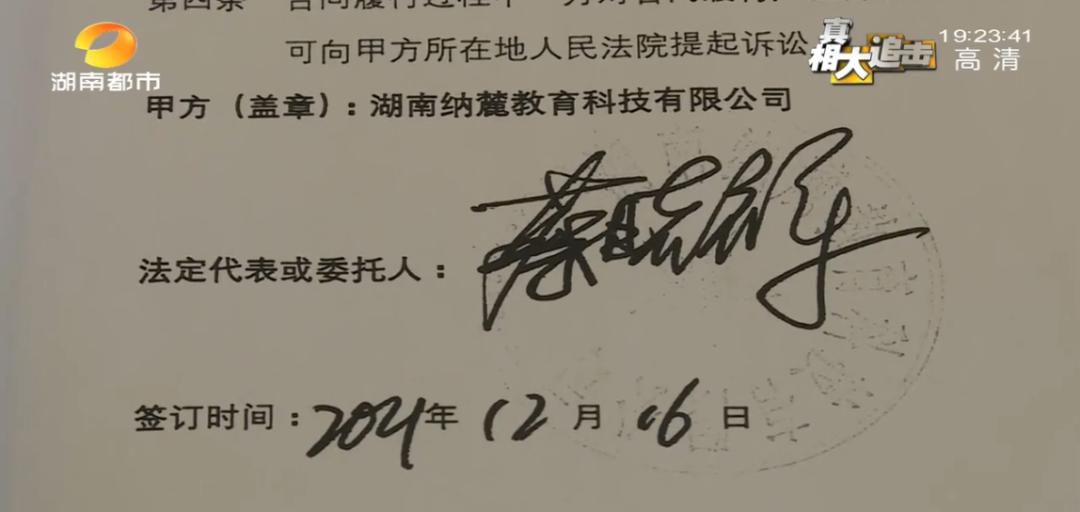 第四条 合同履行过程中
可向甲方所在地人民法院提起诉讼
湖南都市
真相大追击
19:23:41
高清
甲方（盖章）：湖南纳麓教育科技有限公司
法定代表或委托人：蔡
签订时间：2021年 12月 16日